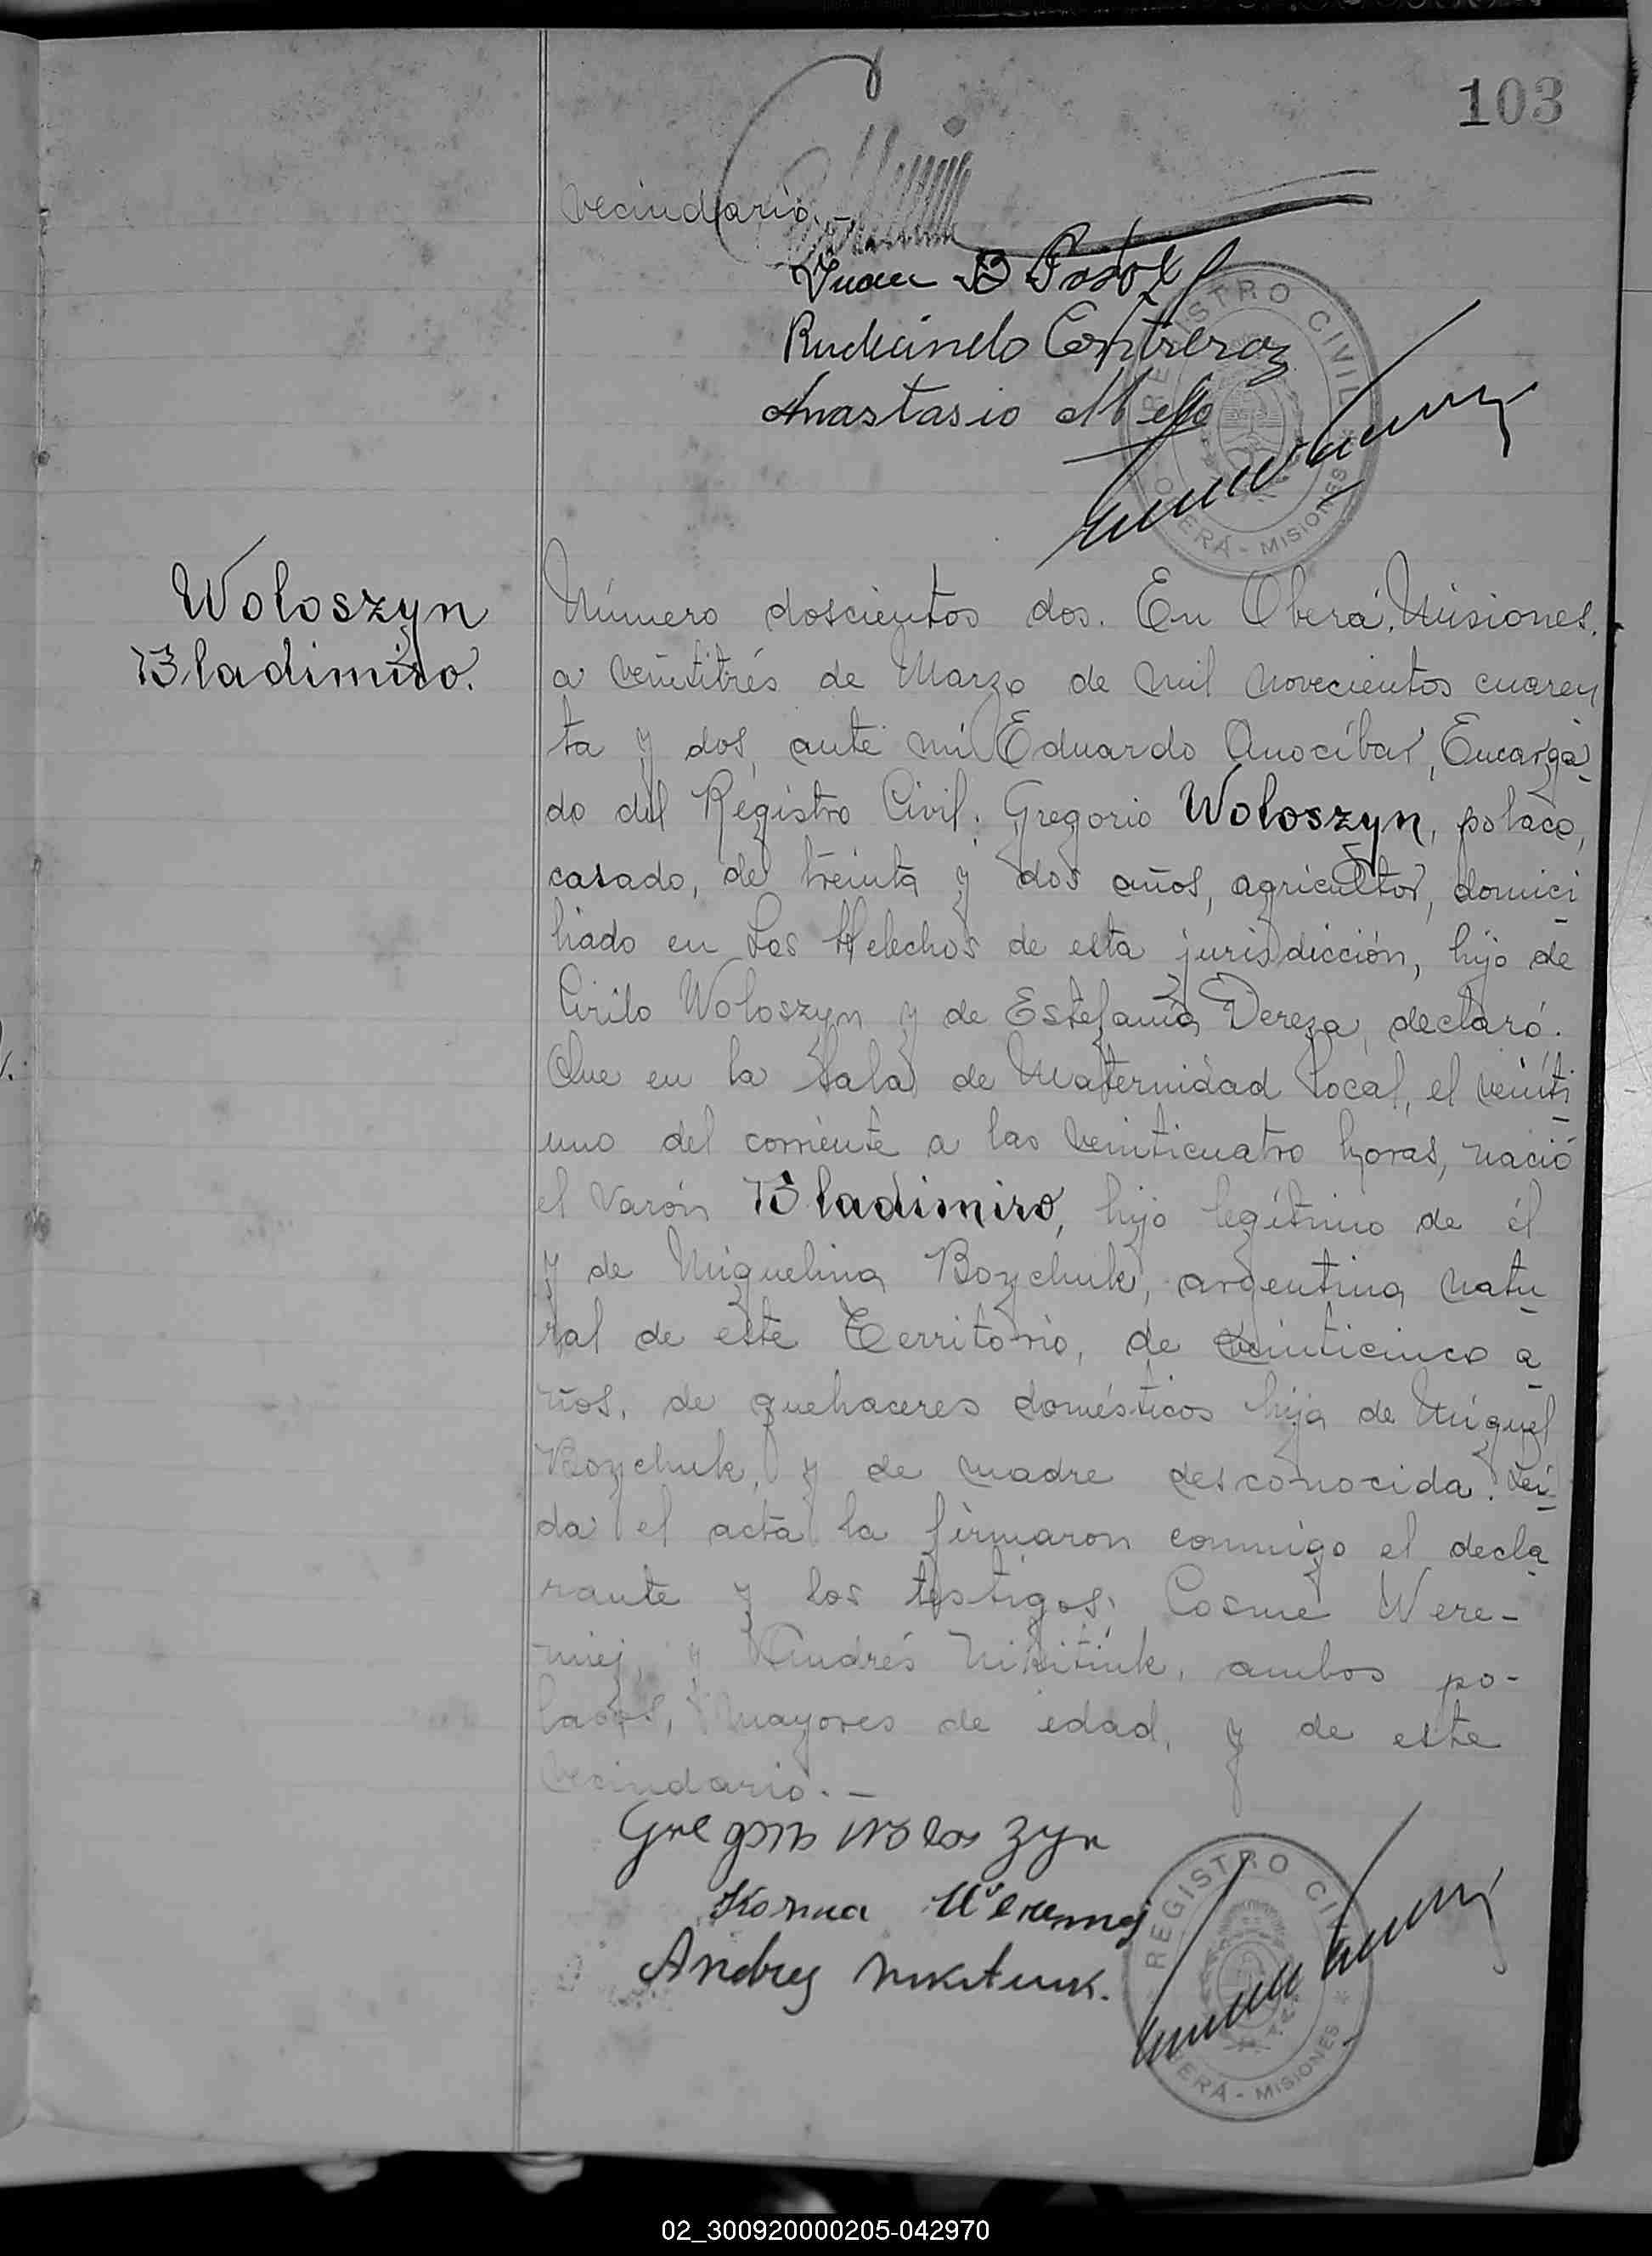 103
vecindario.-
Juan B
Contreras
Anastasio Mello
REGISTRO CIVIL
OBERÁ - MISIONES
Woloszyn
Bladimiro.
Número doscientos dos. En Oberá, Misiones,
a veintitrés de Marzo de mil novecientos cuaren
ta y dos, ante mí Eduardo Anocíbar, Encarga-
do del Registro Civil. Gregorio Woloszyn, polaco,
casado, de treinta y dos años, agricultor, domici-
liado en Los Helechos de esta jurisdicción, hijo de
Cirilo Woloszyn y de Estefanía Dereza, declaró.
Que en la Sala de Maternidad local, el veinti-
uno del corriente a las veinticuatro horas, nació
el varón Bladimiro, hijo legítimo de él
y de Miguelina Bozychuk, argentina natu-
ral de este Territorio, de veinticinco a-
ños, de quehaceres domésticos hija de Miguel
Bozychuk, y de madre desconocida. Leí-
da el acta la firmaron conmigo el decla-
rante y los testigos, Cosme Were-
miej, y Andrés Nikitiuk, ambos po-
lacos, mayores de edad, y de este
vecindario.-
Gregorio Woloszyn
Kosma Weremiej
Andrey Nikitiuk.
REGISTRO CIVIL
OBERÁ - MISIONES
02_300920000205-042970